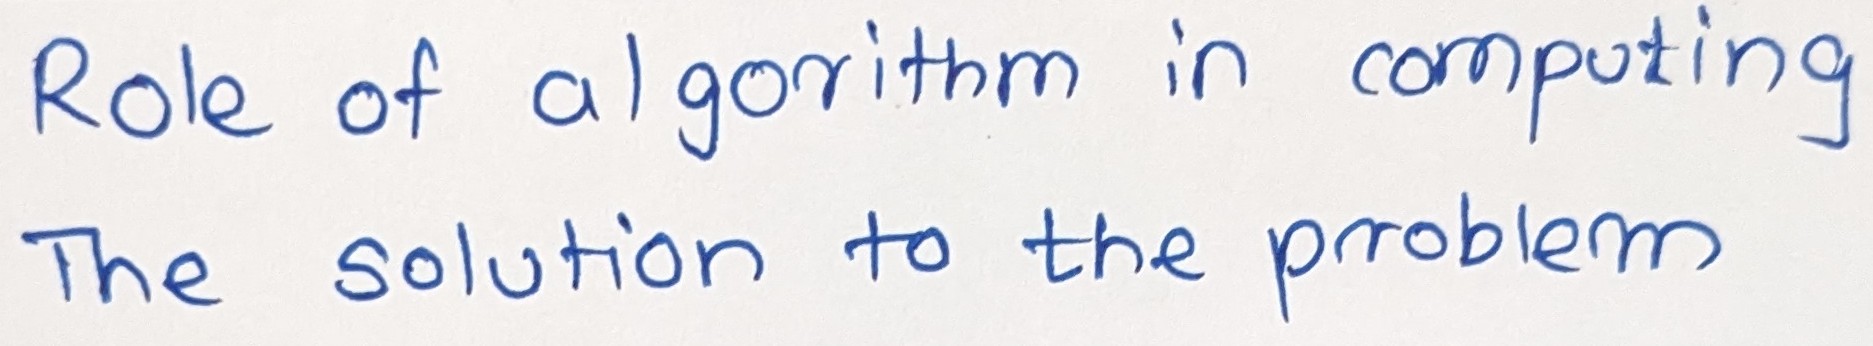 Role of algorithm in computing
The solution to the problem